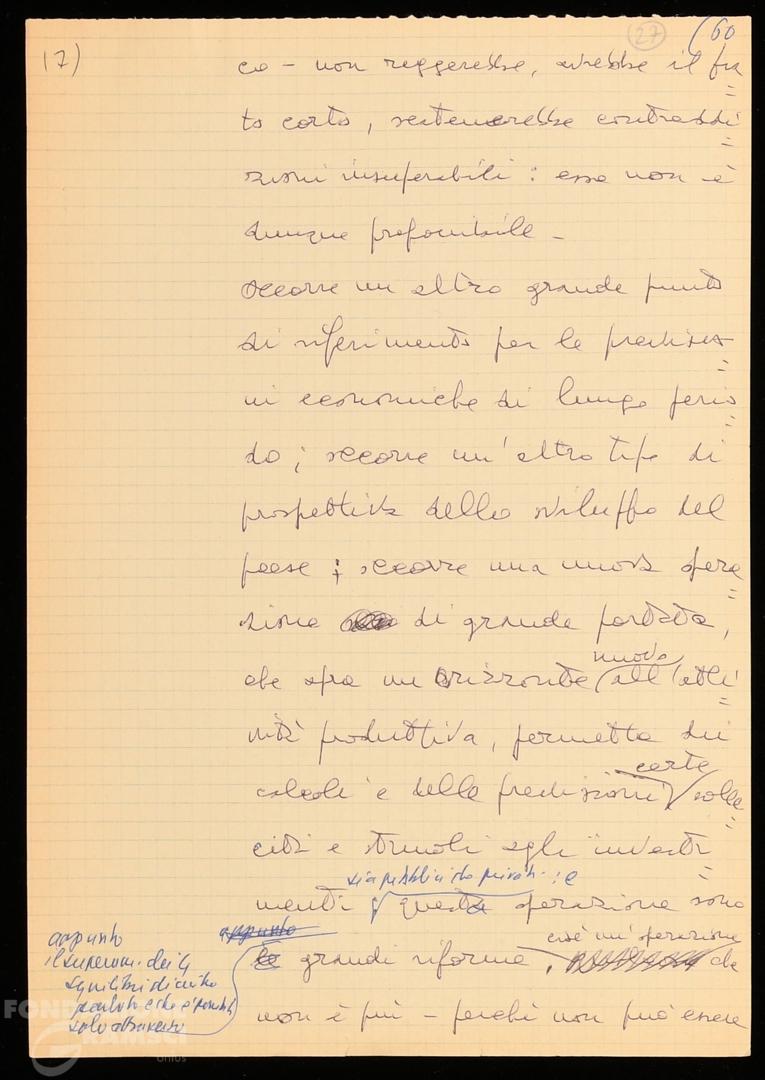 17)
27
(60
co – non reggerebbe, avrebbe il fia=
to corto, scatenerebbe contraddi=
zioni insuperabili: essa non è
dunque proponibile –
Occorre un altro grande punto
di riferimento per le previsio=
ni economiche di lungo perio=
do; occorre un'altro tipo di
prospettiva dello sviluppo del
paese; occorre una nuova opera=
zione di grande portata,
nuovo
che apra un orizzonte all'atti=
vità produttiva, permetta dei
certe
calcoli e delle previsioni, solle=
citi e stimoli agli investi=
sia pubblici che privati: e
menti questa operazione sono
appunto
cioè un'operazione
le grandi riforme, che
non è più – perché non può essere
appunto
il superam. degli
squilibri di cui ho
parlato e che è possibile
solo attraverso
FONDAZIONE
GRAMSCI
onlus